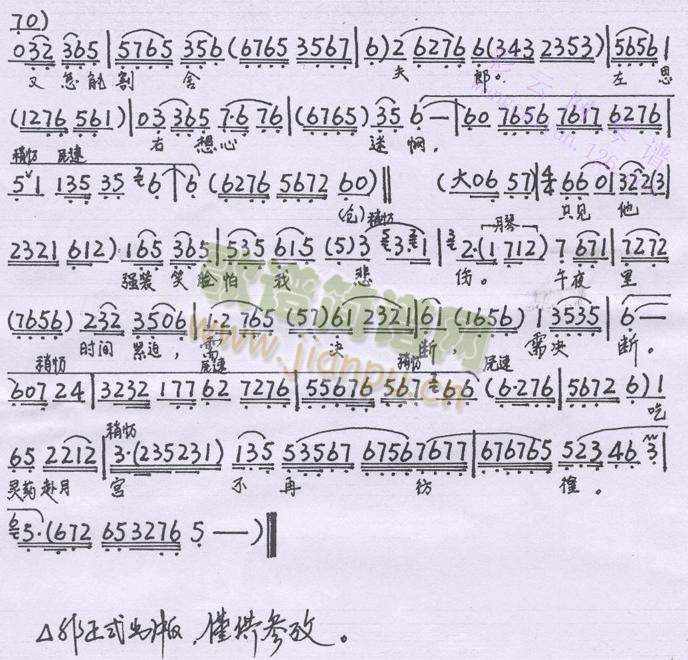 70)
032 365 | 5765 356 (6765 3567 | 6) 2 6276 6 (343 2353) | 5656 1
又怎能割 舍 夫 郎。 左思
(1276 561) | 03 365 7·6 76 | (6765) 35 6 — | 60 7656 7617 6276 |
右 想心 迷惘,
稍忉 尾速
5 1 135 35 6 6 (6276 5672 60) || (大06 57) | サ 66 01 32 2(3 |
(仓) 稍忉 只见 他
月琴
2321 612)· 165 365 | 535 615 (5) 3 3·1 | 2·(1 712) 7 671 | 7272
强装 笑脸怕 我 悲 伤。 午夜 里
(7656) 232 3506 | 1·2 765 (57) 61 2321 | 61 (1656) 1 3535 | 6 —
时间 紧迫, 需 决 断, 需决 断。
稍忉 尾速 稍忉 尾速
607 24 | 3232 177 62 7276 | 55676 567 66 (6·276 | 5672 6) 1
吃
稍忉
65 2212 | 3·(235231) 135 53567 67567677 | 676765 523 46 3 |
灵药赴月 宫 不 再 彷 徨。
5·(672 653276 5 — — )||
△非正式出版,仅供参考。
歌谱简谱网
www.jianpu.cn